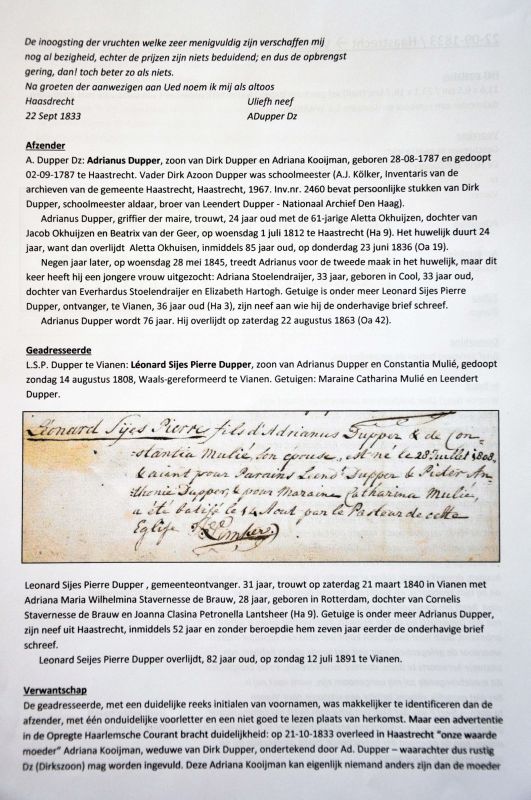 De inoogsting der vruchten welke zeer menigvuldig zijn verschaffen mij
nog al bezigheid, echter de prijzen zijn niets beduidend; en dus de opbrengst
gering, dan! toch beter zo als niets.
Na groeten der aanwezigen aan Ued noem ik mij als altoos
Haasdrecht Uliefh neef
22 Sept 1833 ADupper Dz
Afzender
A. Dupper Dz: Adrianus Dupper, zoon van Dirk Dupper en Adriana Kooijman, geboren 28-08-1787 en gedoopt
02-09-1787 te Haastrecht. Vader Dirk Azoon Dupper was schoolmeester (A.J. Kölker, Inventaris van de
archieven van de gemeente Haastrecht, Haastrecht, 1967. Inv.nr. 2460 bevat persoonlijke stukken van Dirk
Dupper, schoolmeester aldaar, broer van Leendert Dupper - Nationaal Archief Den Haag).
Adrianus Dupper, griffier der maire, trouwt, 24 jaar oud met de 61-jarige Aletta Okhuijzen, dochter van
Jacob Okhuijzen en Beatrix van der Geer, op woensdag 1 juli 1812 te Haastrecht (Ha 9). Het huwelijk duurt 24
jaar, want dan overlijdt Aletta Okhuisen, inmiddels 85 jaar oud, op donderdag 23 juni 1836 (Oa 19).
Negen jaar later, op woensdag 28 mei 1845, treedt Adrianus voor de tweede maak in het huwelijk, maar dit
keer heeft hij een jongere vrouw uitgezocht: Adriana Stoelendraijer, 33 jaar, geboren in Cool, 33 jaar oud,
dochter van Everhardus Stoelendraijer en Elizabeth Hartogh. Getuige is onder meer Leonard Sijes Pierre
Dupper, ontvanger, te Vianen, 36 jaar oud (Ha 3), zijn neef aan wie hij de onderhavige brief schreef.
Adrianus Dupper wordt 76 jaar. Hij overlijdt op zaterdag 22 augustus 1863 (Oa 42).
Geadresseerde
L.S.P. Dupper te Vianen: Léonard Sijes Pierre Dupper, zoon van Adrianus Dupper en Constantia Mulié, gedoopt
zondag 14 augustus 1808, Waals-gereformeerd te Vianen. Getuigen: Maraine Catharina Mulié en Leendert
Dupper.
Léonard Sijes Pierre fils d'Adrianus Dupper & de Con-
stantia Mulié son epouse, est né le 28 Juillet 1808,
& aiant pour Parains Leend Dupper & Pieter An-
thonie Dupper, & pour Maraine Catharina Mulié,
a été batisé le 14 Aout par le Pasteur de cette
Eglise
Leonard Sijes Pierre Dupper , gemeenteontvanger. 31 jaar, trouwt op zaterdag 21 maart 1840 in Vianen met
Adriana Maria Wilhelmina Stavernesse de Brauw, 28 jaar, geboren in Rotterdam, dochter van Cornelis
Stavernesse de Brauw en Joanna Clasina Petronella Lantsheer (Ha 9). Getuige is onder meer Adrianus Dupper,
zijn neef uit Haastrecht, inmiddels 52 jaar en zonder beroepdie hem zeven jaar eerder de onderhavige brief
schreef.
Leonard Seijes Pierre Dupper overlijdt, 82 jaar oud, op zondag 12 juli 1891 te Vianen.
Verwantschap
De geadresseerde, met een duidelijke reeks initialen van voornamen, was makkelijker te identificeren dan de
afzender, met één onduidelijke voorletter en een niet goed te lezen plaats van herkomst. Maar een advertentie
in de Opregte Haarlemsche Courant bracht duidelijkheid: op 21-10-1833 overleed in Haastrecht "onze waarde
moeder" Adriana Kooijman, weduwe van Dirk Dupper, ondertekend door Ad. Dupper – waarachter dus rustig
Dz (Dirkszoon) mag worden ingevuld. Deze Adriana Kooijman kan eigenlijk niemand anders zijn dan de moeder